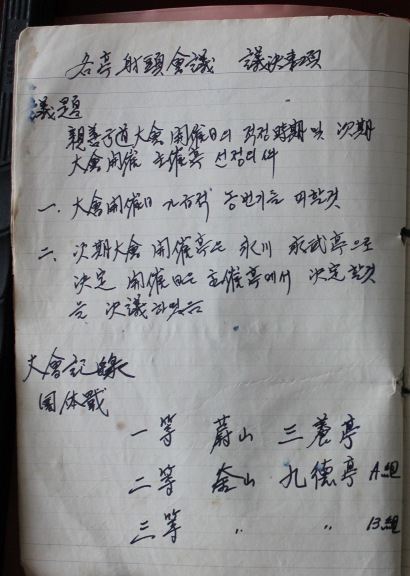 各亭射頭會議 議決事項
議題
親善弓道大會 開催日의 적정時期 및 次期
大會開催 主催亭 선정의件
一. 大會開催日 가급적 농번기를 피할것
二. 次期大會 開催亭은 永川 永武亭으로
決定 開催日은 主催亭에서 決定할것
을 決議하였음
大會記錄
団体戰
一等 蔚山 三養亭
二等 釜山 九德亭 A組
三等 〃 〃 B組